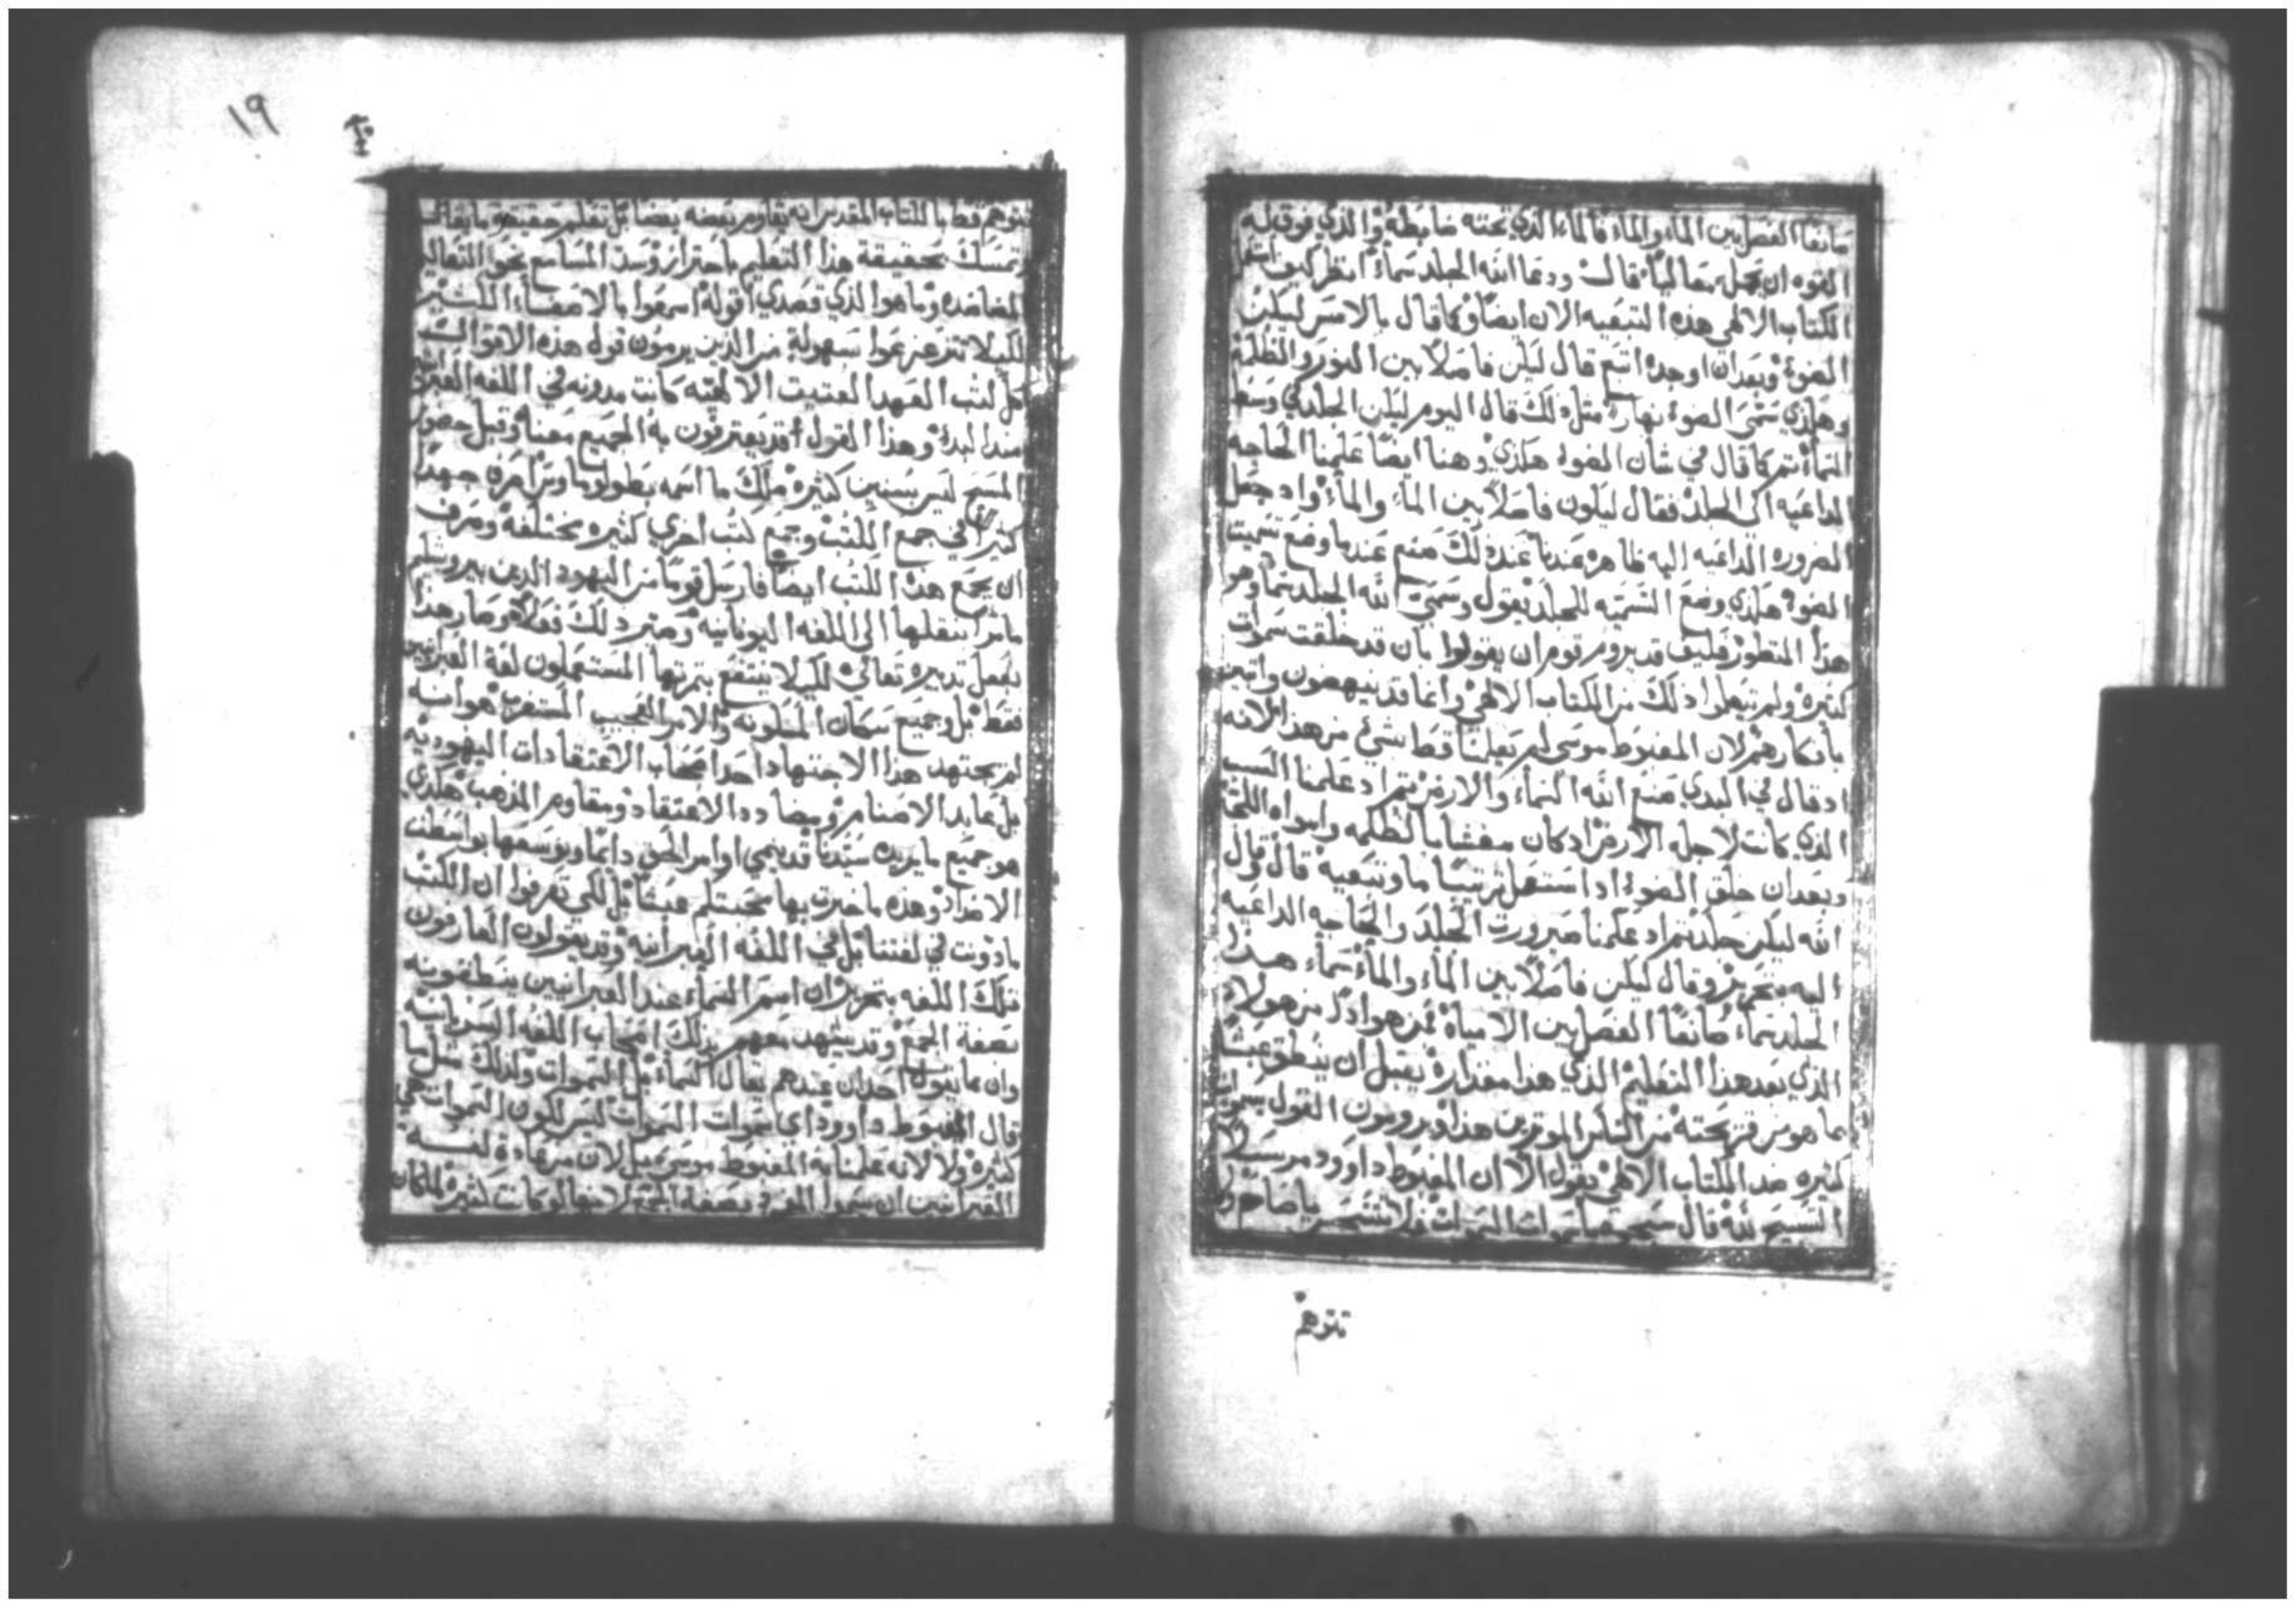 مانعًا الفصل بين الماء والماء فالماء الذي تحته ضابطه والذي فوق قبله
القوه ان يحمله متعاليًا قال ودعا الله الجلد سماء انظر كيف استعمل
الكتاب الالهي هذه التبعيه الان ايضًا وكما قال بالامس ليكن
الضوء وبعد ان اوجده اتبع قال ليكن فاصلاً بين النور والظلمة
وهكذي سمى الضوء نهارًا مثل ذلك قال اليوم ليكن الجلد في وسط
الماء ثم كما قال في شان الضوء هكذي وهنا ايضًا علمنا الحاجه
الداعيه الى الجلد فقال ليكون فاصلاً بين الماء والماء واد جعل
الضروره الداعيه اليه ظاهره عندنا عند ذلك صنع عندما وضع تسميت
الضوء هكذي وضع التسميه للجلد يقول وسمى الله الجلد سما وهو
هذا المنظور فكيف قد يروم قوم ان يقولوا بان قد خلقت سموات
كثيره ولم يتعلموا ذلك من الكتاب الالهي وانما قد ينهضون واتين
بافكارهم لان المغبوط موسى لم يعلمنا قط شي من هذا لانه
اد قال في البدي صنع الله السماء والارض ثم اد علمنا السبب
الذي كانت لاجله الارض اد كان مغشا بالظلمه وامواه اللجة
وبعد ان خلق الضوء اد استعمل ترتيبًا ما وتبعيه قال وقال
الله ليكن جلد ثم اد علمنا ضرورت الجلد والحاجه الداعيه
اليه بتحرير وقال ليكن فاصلاً بين الماء والماء سماء هذا
الجلد سماء صانعًا الفصل بين الامياه فمن هو اذًا من هولاء
الذي بعد هذا التعليم الذي هذا مقداره يقبل ان ينطق عبثًا
بما هو من قريحته من الناس الموثرين هذا ويرومون القول بسموات
كثيره ضد الكتاب الالهي يقول الا ان المغبوط داوود مرسلا
التسبيح لله قال سبحيه يا سموات السموات فلا تتحير يا صاح ولا
تتوهم
١٩
تتوهم قط يا للكتاب المقدس انه يقاوم بعضه بعضا بل تعلم حقيقة ما يقال
وتمسك بحقيقة هذا التعليم باحتراز وسد المسامع نحو التعاليم
المضاضده وما هو الذي قصدي اقوله اسمعوا بالاصغاء الكثير
لكيلا تتزعزعوا بسهولة من الذين يرمون قول هذه الاقوال
كل كتب العهد العتيق الالهيه كانت مدونه في اللغه العبرانيه
منذ البدء وهذا القول قد يعترفون به الجميع معنا وقبل حضور
المسيح ليس بسنين كثيره ملك ما اسمه بطولوماوس امره جهدا
كثيرا في جمع الكتب وجمع كتب اخرى كثيره مختلفة وعرف
ان يجمع هذه الكتب ايضًا فارسل قومًا من اليهود الذين بيروشليم
مامرًا بنقلها الى اللغه اليونانيه وصير ذلك فعلاً وصار هذا
بفعل تدبيره تعالى لكيلا ينتفع بثمرتها المستعملون لغة العبرانيين
فقط بل وجميع سكان المسكونه والامر العجيب المستغرب هو انه
لم يجتهد هذا الاجتهاد احد اصحاب الاعتقادات اليهوديه
بل عابد الاصنام ومضادد الاعتقاد ومقاوم المذهب هكذي
هو جميع ما يريده سيدنا قد ينمي اوامر الحق دائمًا ويوسعها بواسطت
الاضداد وهذه ما خبرت بها محبتكم عبثًا بل لكي تعرفوا ان الكتب
ما دونت في لغتنا بل في اللغه العبرانيه وقد يقولون العارفون
تلك اللغه بتحرير ان اسم السماء عند العبرانيين ينطقونه
بصفة الجمع وقد يشهد معهم بذلك اصحاب اللغه السريانيه
وان ما يقول احد ان عندهم يقال السماء بل السموات ولذلك مثل
قال المغبوط داوود اي سموات السموات ليس لكون السموات هي
كثيره ولا لانه علمنا به المغبوط موسى بل لان من عادة لغه
العبرانيين ان يسموا المفرد بصفة الجمع لانها لو كانت كثيره لما كان